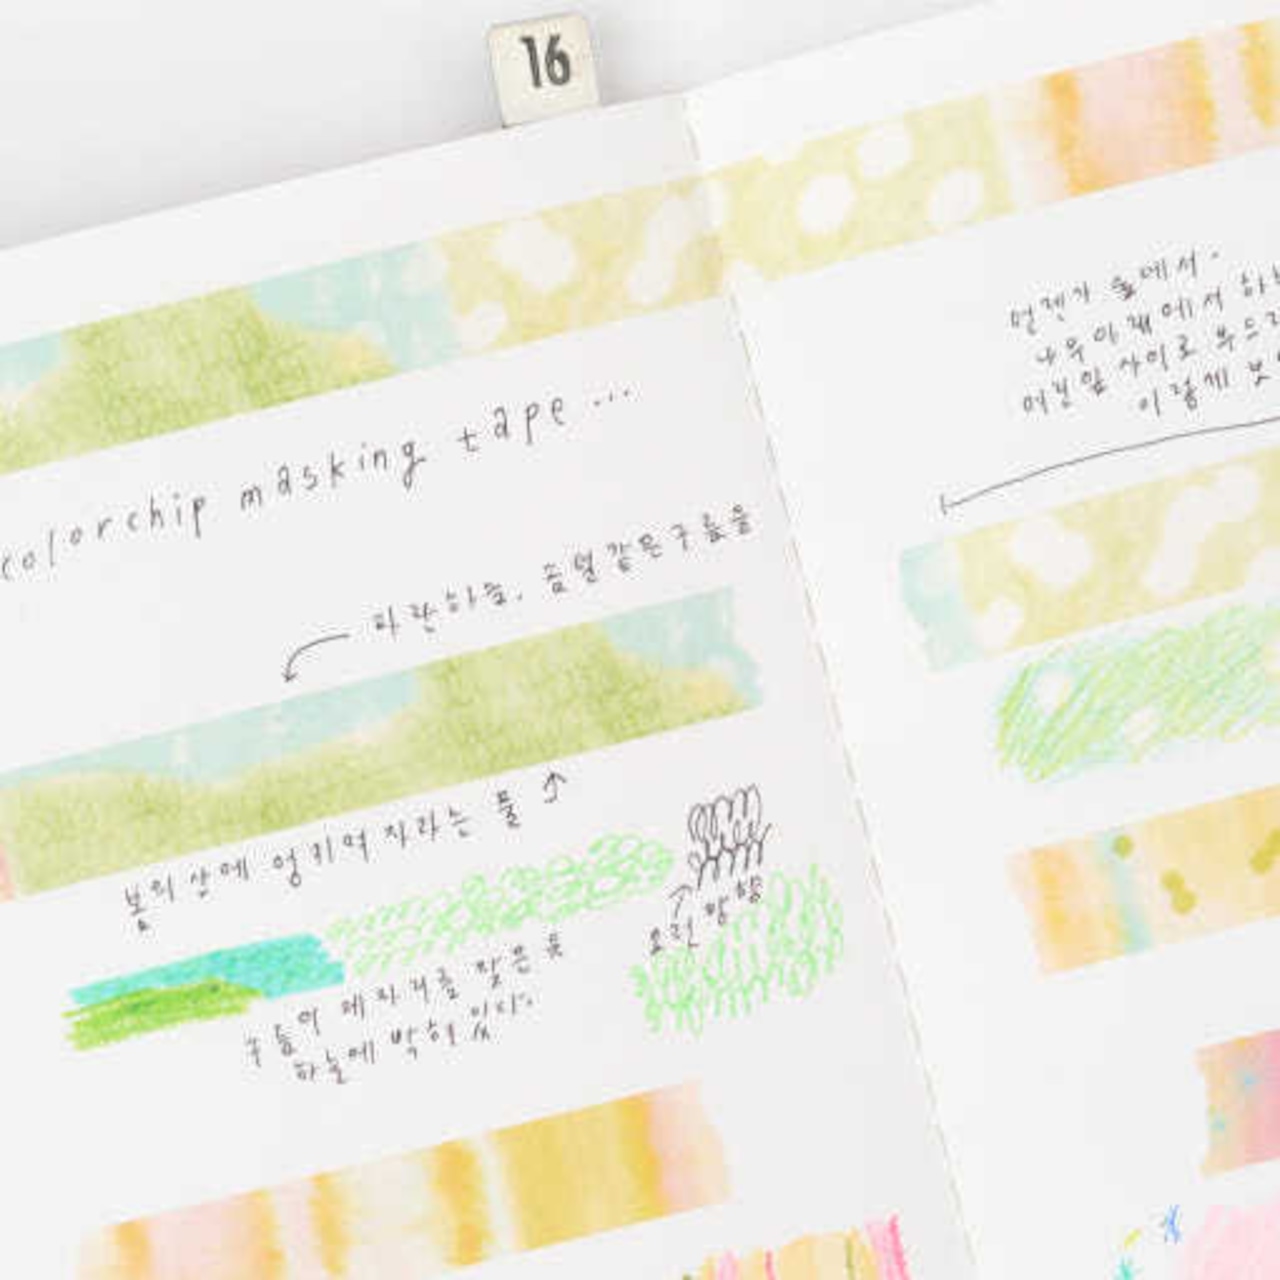 16
colorchip masking tape...
파란하늘. 솜털같은구름을
봄의 산에 엉키며 자라는 풀
구름이 제자리를 찾은 듯
하늘에 박혀 있다.
언젠가 숲에서.
나무아래에서
사이로
이렇게